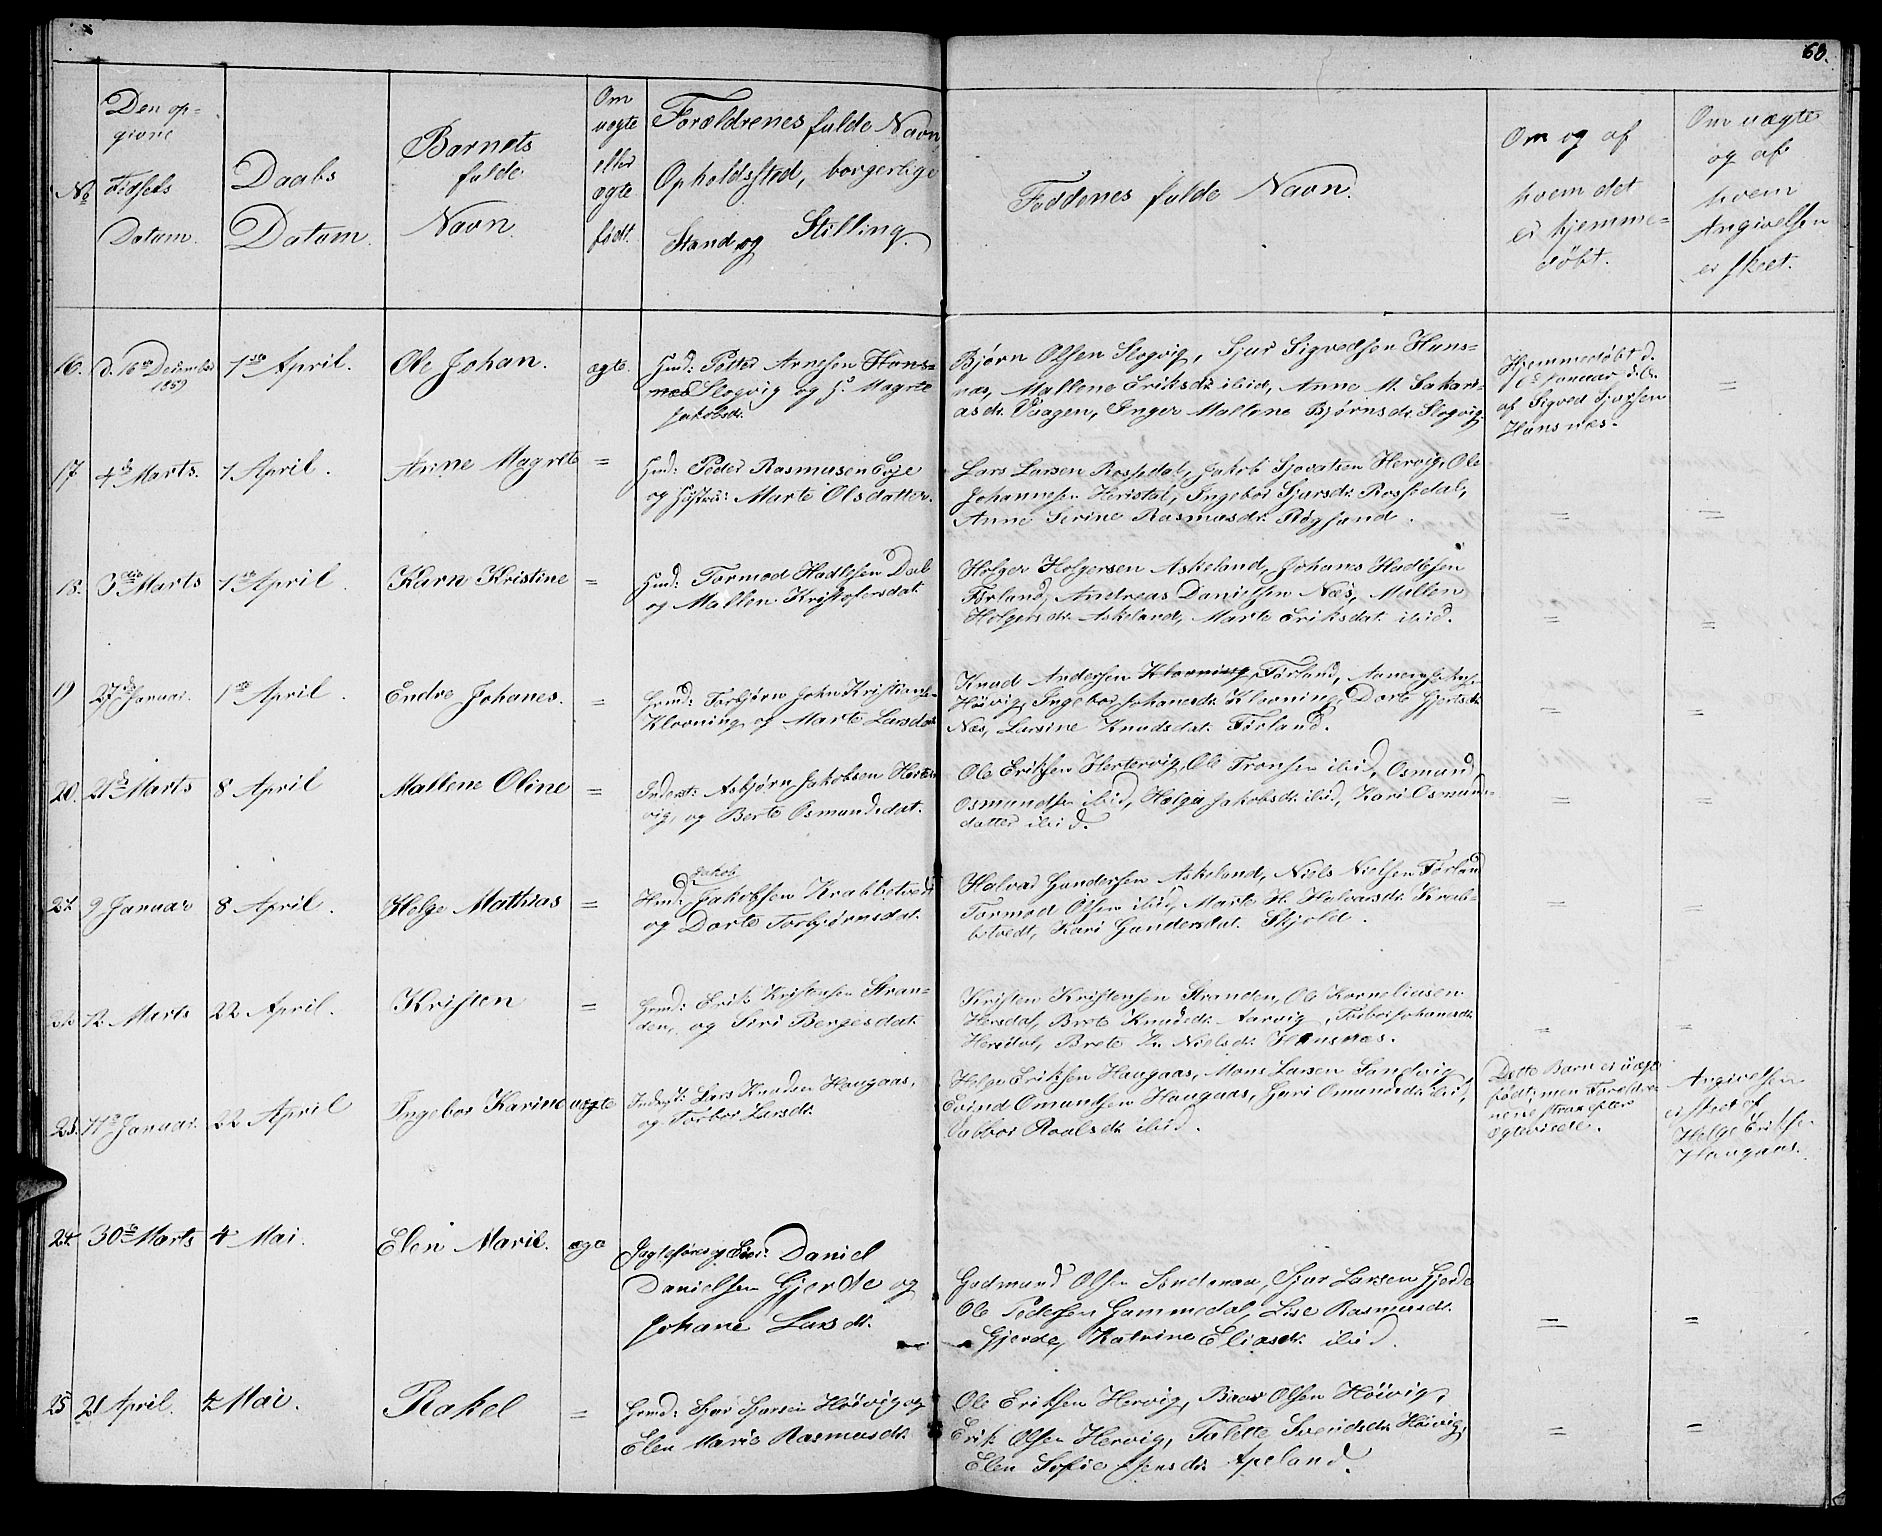 68.
No
Den op-
givne
Fødsels
Datum.
Daabs
Datum.
Barnets
fulde
Navn.
Om
uægte
eller
ægte
født.
Forældrenes fulde Navn
Opholdsted, borgerlige
Stand og Stilling.
Faddenes fulde Navn.
Om og af
hvem det
er hjemme-
døbt.
Om uægte
og af
hvem
Angivelsen
er skeet.
16. d. 16de December
1859
1ste April. Ole Johan. ægte.
Gmd: Peder Arnesen Hans-
næs Slogvig og H. Magrete
Jakobsdt.
Bjørn Olsen Slogvig, Sjur Sigvedsen Hans-
næs, Mallene Eriksdt. ibid, Anne M. Sakari-
asdt. Vaagen, Inger Mallene Bjørnsdt. Slogvig.
Hjemmedøbt d.
Januar
af Sigved Sjursen
Hansnæs.
=
17 4de Marts. 1 April. Anne Magrete =
Gmd: Peder Rasmusen Eeje
og Hustru: Marte Olsdatter.
Lars Larsen Rossedal, Jakob Sjovatsen Hervig, Ole
Johannesen Herisdal, Ingebor Sjursdt. Rossedal,
Anne Serine Rasmusdt. Røgsund.
= =
18. 3die Marts 1ste April Karn Kristine =
Gmd: Tormod Hadlesen Dale
og Mallen Kristofersdat.
Holger Holgersen Askeland, Johans Hadlesen
Førland, Andreas Danielsen Næs, Mallen
Holgersdt. Askeland, Marte Eriksdat. ibid.
= =
19 27de Januar. 1ste April. Endre Johanes. =
Gmd: Torbjørn John Kristians-
Klovning og Marte Larsdat.
Knud Andersen Klovning Førland,
Høivig, Ingebor Johanesdt. Klovning, Dorte Gjertsdt.
Næs, Larsine Knudsdat. Førland.
= =
20. 21de Marts 8 April Mallene Oline =
Inderst: Asbjørn Jakobsen Herter-
vig, og Berte Osmundsdat.
Ole Eriksen Hertervig, Ole Tronsen ibid, Osmund
Osmundsen ibid, Helga Jakobsdt. ibid, Kari Osmunds-
datter ibid.
= =
21. 9 Januar 8 April. Helge Mathias =
Jakob
Hmd: Jakobsen Krabbetvedt
og Dorte Torbjørnsdat.
Halvar Gundersen Askeland, Niels Nielsen Førland
Tormod Olsen ibid, Marte H. Halvarsdt. Krab-
betvedt, Kari Gundersdat. Skjold.
= =
22. 12 Marts 22 April. Kristen =
Gmd: Erik Kristensen Stran-
den, og Siri Bergesdat.
Kristen Kristensen Stranden, Ole Korneliusen
Herisdal, Brete Knudsdt. Aarvig, Torbor Johanesdt.
Herisdal, Brete K. Nielsdt. Hansnæs.
= =
23. 11te Januar. 22 April Ingebor Karine uægte
Inderst: Lars Knudsen Haugaas,
og Torbor Larsdt.
Helge Eriksen Haugaas, Mons Larsen Sandvig
Eivind Omundsen Haugaas, Guri Omundsdt. ibid,
Vabbor Roalsdt. ibid.
Dette Barn er uægte
født; men Forældre-
nene strax efter
ægteviede.
Angivelsen
er skeet af
Helge Eriksen
Haugaas.
24. 30te Marts 4 Mai. Elen Marie. ægte
Jagtefører og Eier: Daniel
Danielsen Gjerde og
Johane Larsdt.
Gudmund Olsen Søndenaa, Sjur Larsen Gjerde
Ole Pedersen Gammedal, Lise Rasmusdt.
Gjerde, Katrine Eliasdt. ibid.
= =
25 21 April. 4 Mai. Rakel =
Gmd: Sjur Sjursen Høivig og
Elen Marie Rasmusdt.
Ole Eriksen Hervig, Baar Olsen Høivig,
Erik Olsen Hervig, Talette Svendsdt. Høivig,
Elen Sofie Jensdt. Apeland.
= =